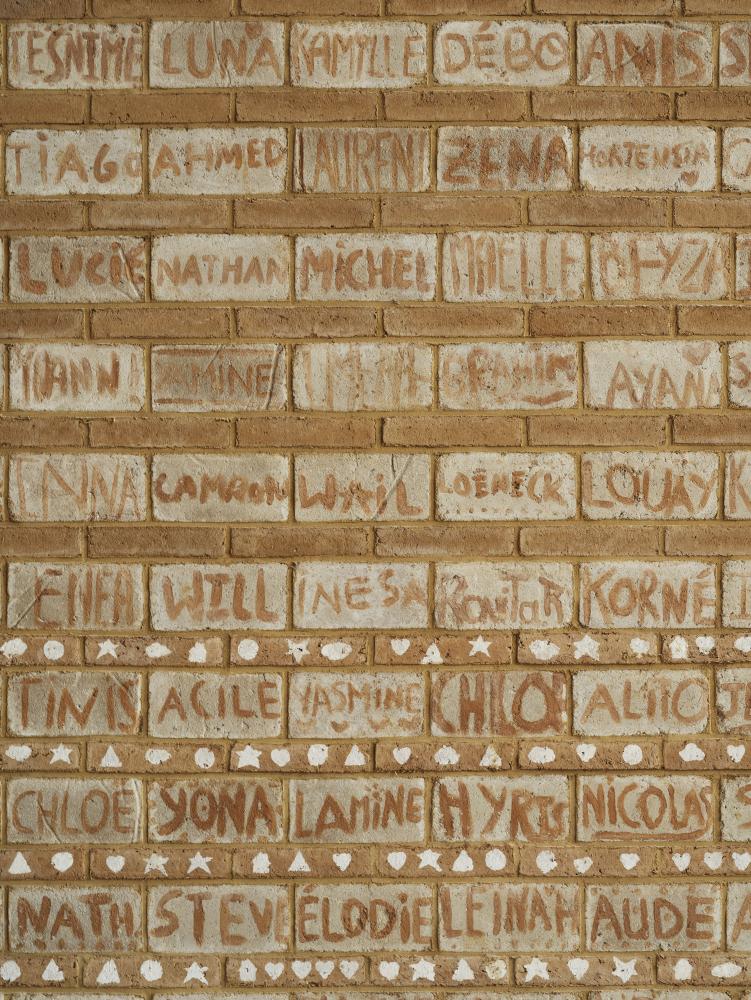 TESNIME LUNA KAMYLLE DÉBO AMIS S
TIAGO AHMED LAUREN ZENA HORTENSIA
LUCIE NATHAN MICHEL MAELLE
YOANN YAMINE IBRAHIM AYANA S
ENNA CAMRON WAIL LOENECK LOUAY K
WILL INESA KORNÉ
TINIS ACILE YASMINE CHLOÉ J
CHLOÉ YONA LAMINE HYRIS NICOLAS S
NATH STEVE ÉLODIE LEINAH AUDE A